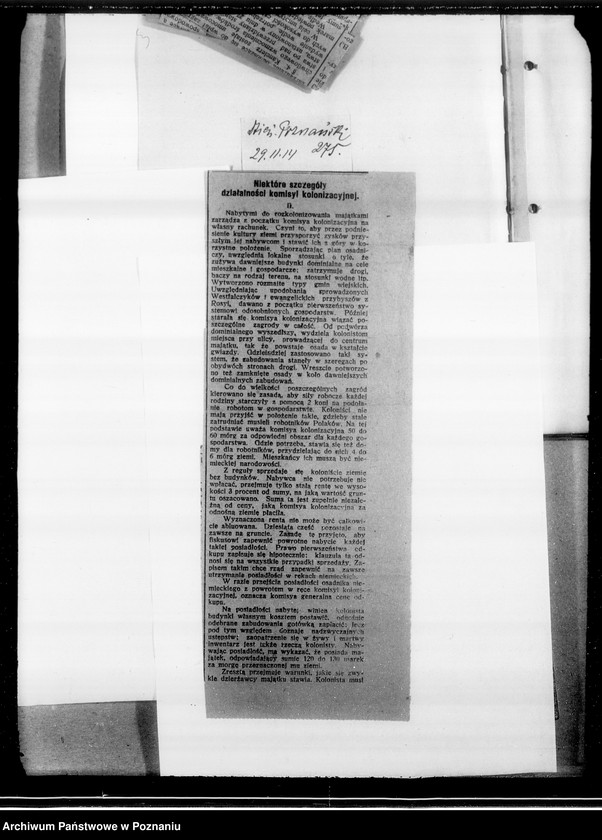 Dzien. Poznański
29.11.14 275.
Niektóre szczegóły
działalności komisyi kolonizacyjnej.
II.
Nabytymi do rozkolonizowania majątkami
zarządza z początku komisya kolonizacyjna na
własny rachunek. Czyni to, aby przez podnie-
sienie kultury ziemi przysporzyć zysków przy-
szłym jej nabywcom i stawić ich z góry w ko-
rzystne położenie. Sporządzając plan osadni-
czy, uwzględnia lokalne stosunki o tyle, że
zużywa dawniejsze budynki dominialne na cele
mieszkalne i gospodarcze; zatrzymuje drogi,
baczy na rodzaj terenu, na stosunki wodne itp.
Wytworzono rozmaite typy gmin wiejskich.
Uwzględniając upodobania sprowadzonych
Westfalczyków i ewangelickich przybyszów z
Rosyi, dawano z początku pierwszeństwo sy-
stemowi odosobnionych gospodarstw. Później
starała się komisya kolonizacyjna wiązać po-
szczególne zagrody w całość. Od podwórza
dominialnego wyszedłszy, wydziela kolonistom
miejsca przy ulicy, prowadzącej do centrum
majątku, tak że powstaje osada w kształcie
gwiazdy. Gdzieindziej zastosowano taki sy-
stem, że zabudowania stanęły w szeregach po
obydwóch stronach drogi. Wreszcie potworzo-
no też zamknięte osady w koło dawniejszych
dominialnych zabudowań.
Co do wielkości poszczególnych zagród
kierowano się zasadą, aby siły robocze każdej
rodziny starczyły z pomocą 2 koni na podoła-
nie robotom w gospodarstwie. Koloniści nie
mają przyjść w położenie takie, gdzieby stale
zatrudniać musieli robotników Polaków. Na tej
podstawie uważa komisya kolonizacyjna 50 do
60 mórg za odpowiedni obszar dla każdego go-
spodarstwa. Gdzie potrzeba, stawia się też do-
my dla robotników, przydzielając do nich 4 do
6 mórg ziemi. Mieszkańcy ich muszą być nie-
mieckiej narodowości.
Z reguły sprzedaje się koloniście ziemię
bez budynków. Nabywca nie potrzebuje nic
wpłacać, przejmuje tylko stałą rentę we wyso-
kości 3 procent od sumy, na jaką wartość grun-
tu oszacowano. Suma ta jest zupełnie niezale-
żną od ceny, jaką komisya kolonizacyjna za
odnośną ziemię płaciła.
Wyznaczona renta nie może być całkowi-
cie abluowana. Dziesiąta część pozostaje na
zawsze na gruncie. Zasadę tę przyjęto, aby
fiskusowi zapewnić powrotne nabycie każdej
takiej posiadłości. Prawo pierwszeństwa od-
kupu zapisuje się hipotecznie; klauzula ta od-
nosi się na wszystkie przypadki sprzedaży. Za-
pisem takim chce rząd zapewnić na zawsze
utrzymania posiadłości w rękach niemieckich.
W razie przejścia posiadłości osadnika nie-
mieckiego z powrotem w ręce komisyi koloni-
zacyjnej, oznacza komisya generalna cenę od-
kupu.
Na posiadłości nabytej winien kolonista
budynki własnym kosztem postawić, odnośnie
odebrane zabudowania gotówką zapłacić; lecz
pod tym względem doznaje nadzwyczajnych
ustępstw; zaopatrzenie się w żywy i martwy
inwentarz jest także rzeczą kolonisty. Naby-
wając posiadłość, ma wykazać, że posiada ma-
jątek, odpowiadający sumie 120 do 130 marek
za morgę przeznaczonej mu ziemi.
Zresztą przejmuje warunki, jakie się zwy-
kle dzierżawcy majątku stawia. Kolonista musi
Archiwum Państwowe w Poznaniu